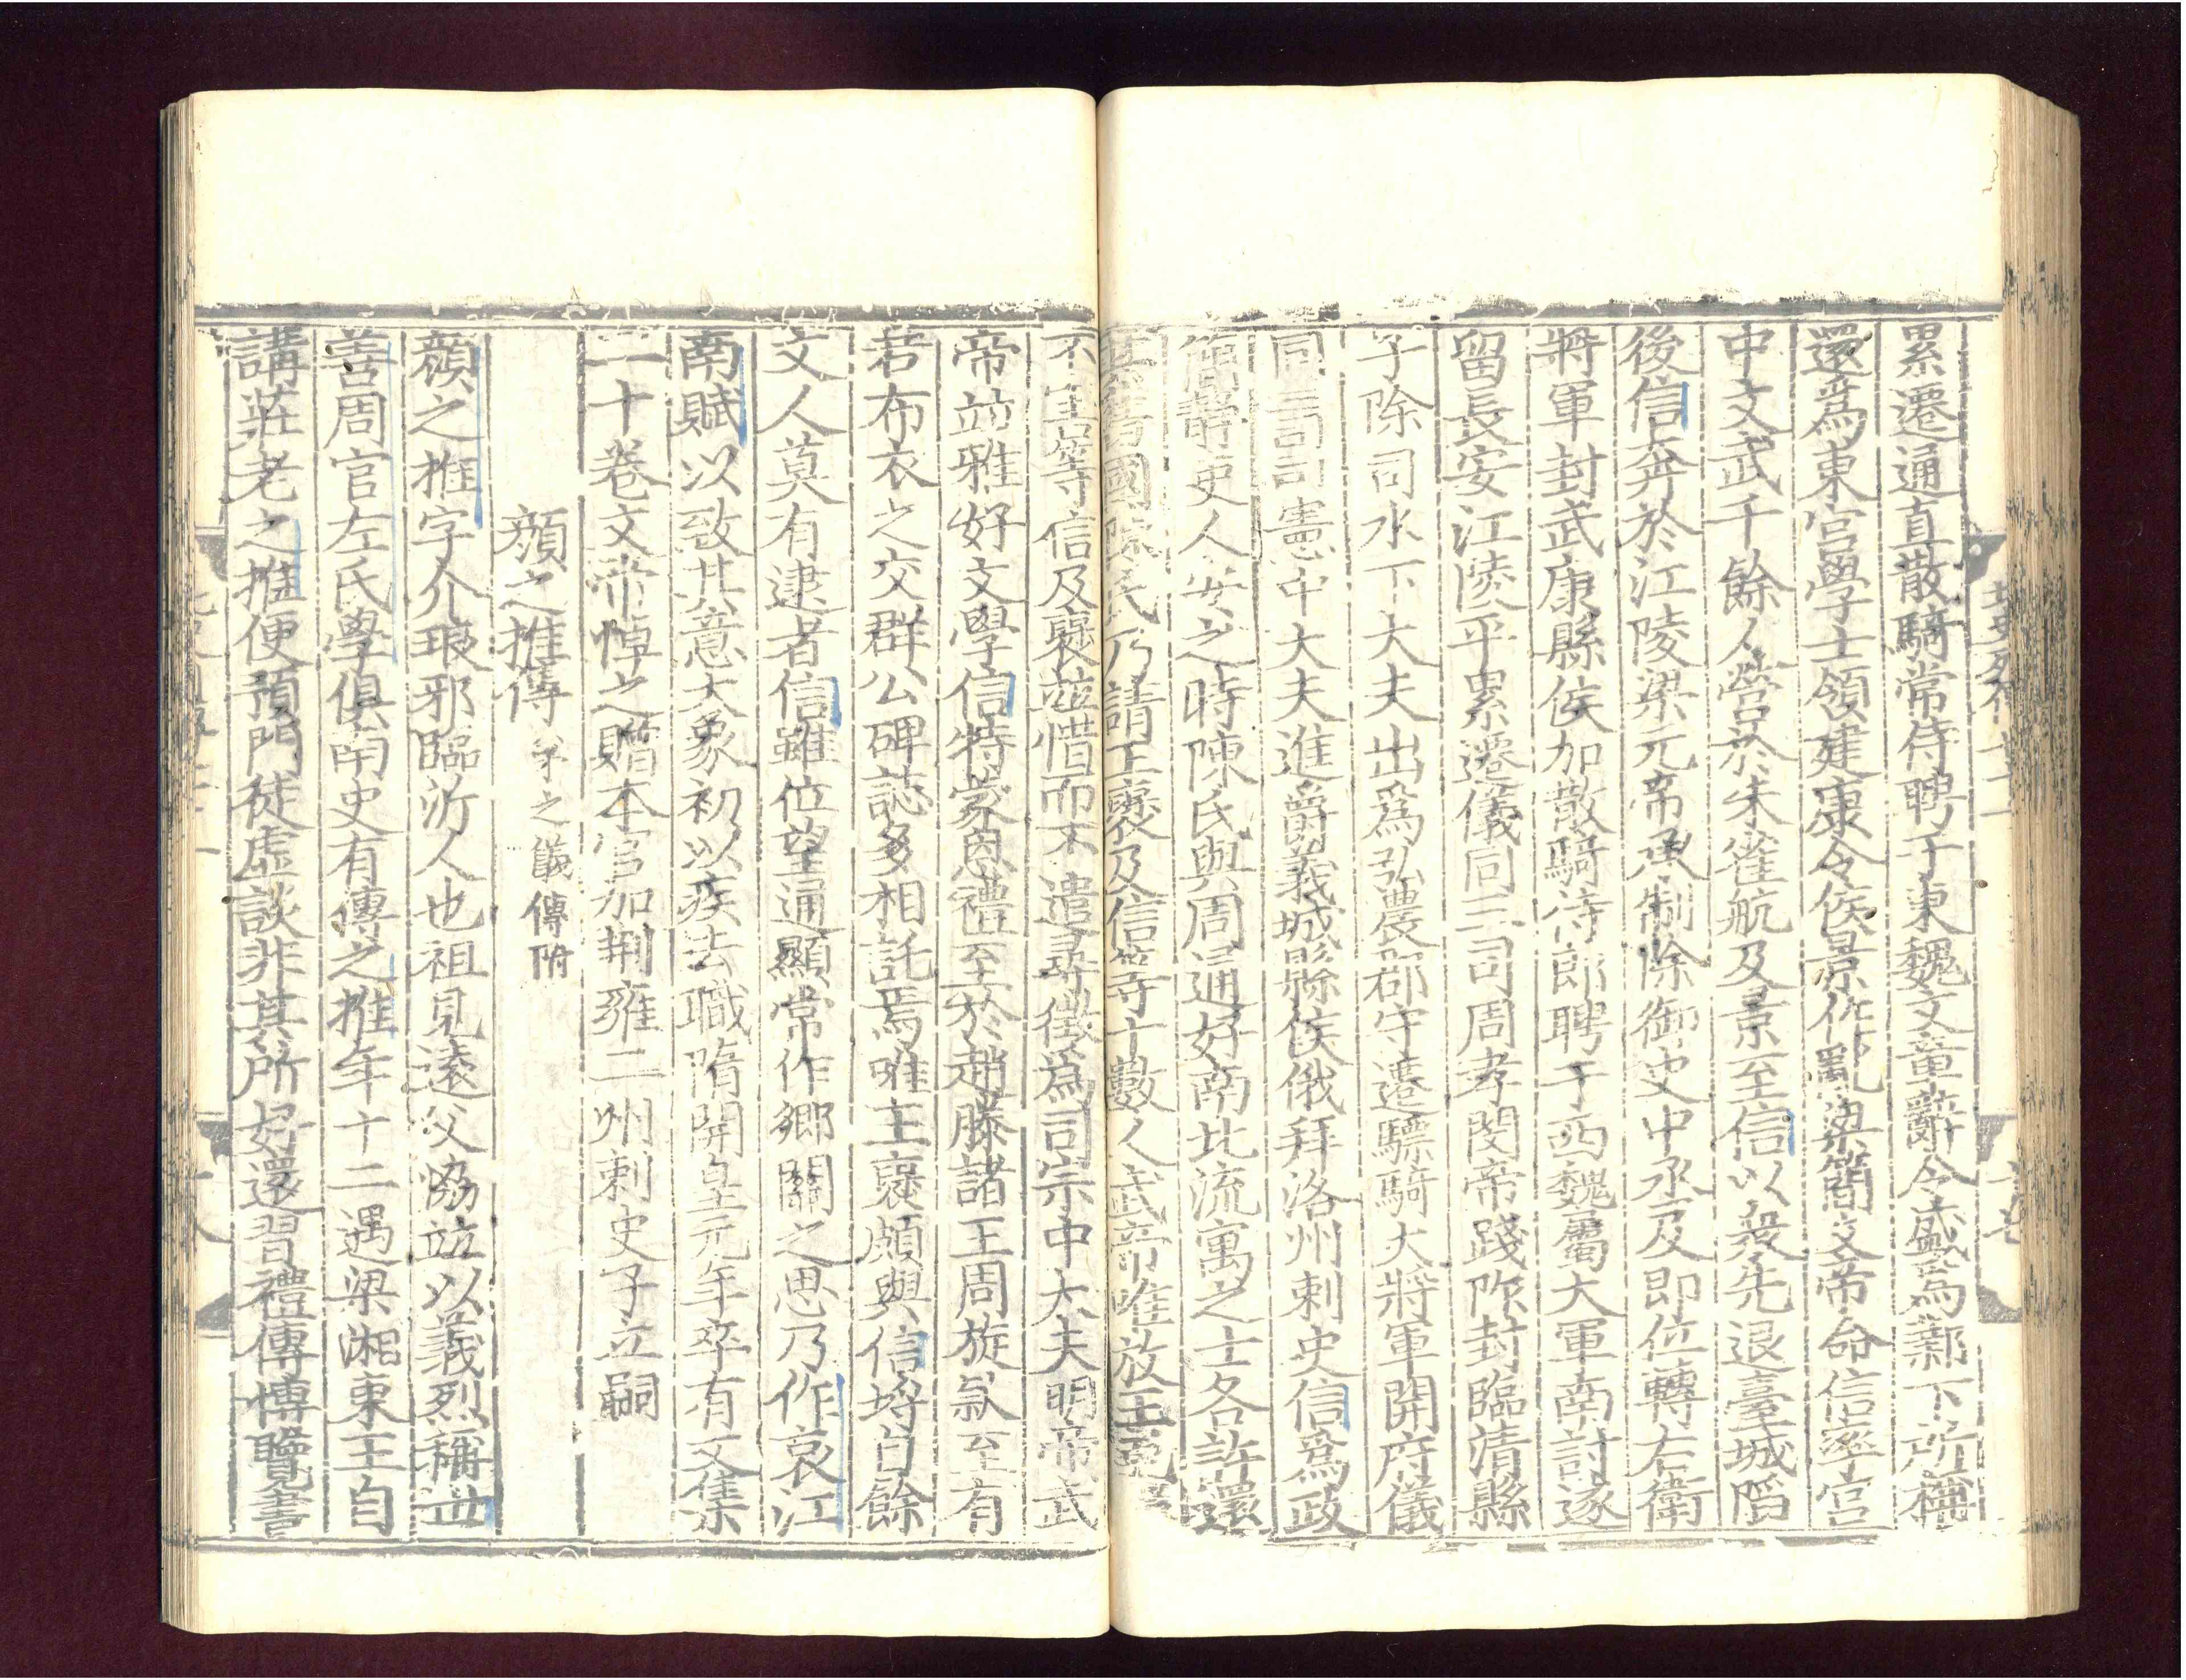 累遷通直散騎常侍聘于東魏文章辭令盛爲鄴下所稱
還爲東宮學士領建康令侯景作亂梁簡文帝命信率宮
中文武千餘人營於朱雀航及景至信以衆先退臺城陷
後信奔於江陵梁元帝承制除御史中丞及即位轉右衛
將軍封武康縣侯加散騎侍郎聘于西魏屬大軍南討遂
留長安江陵平累遷儀同三司周孝閔帝踐阼封臨清縣
子除司水下大夫出爲弘農郡守遷驃騎大將軍開府儀
同三司司憲中大夫進爵義城縣侯俄拜洛州刺史信爲政
簡靜吏人安之時陳氏與周通好南北流寓之士各許還
其舊國陳氏乃請王襃及信等十數人武帝唯放王克
不害等信及襃並惜而不遣尋徵爲司宗中大夫明帝武
帝竝雅好文學信特蒙恩禮至於趙滕諸王周旋款至有
若布衣之交群公碑誌多相託焉唯王襃頗與信埒自餘
文人莫有逮者信雖位望通顯常作鄉關之思乃作哀江
南賦以致其意大象初以疾去職隋開皇元年卒有文集
二十卷文帝悼之贈本官加荆雍二州刺史子立嗣
顔之推傳 弟之儀傳附
顔之推字介琅邪臨沂人也祖見遠父協竝以義烈稱世
善周官左氏學俱南史有傳之推年十二遇梁湘東王自
講莊老之推便預門徒虛談非其所好還習禮傳博覽書